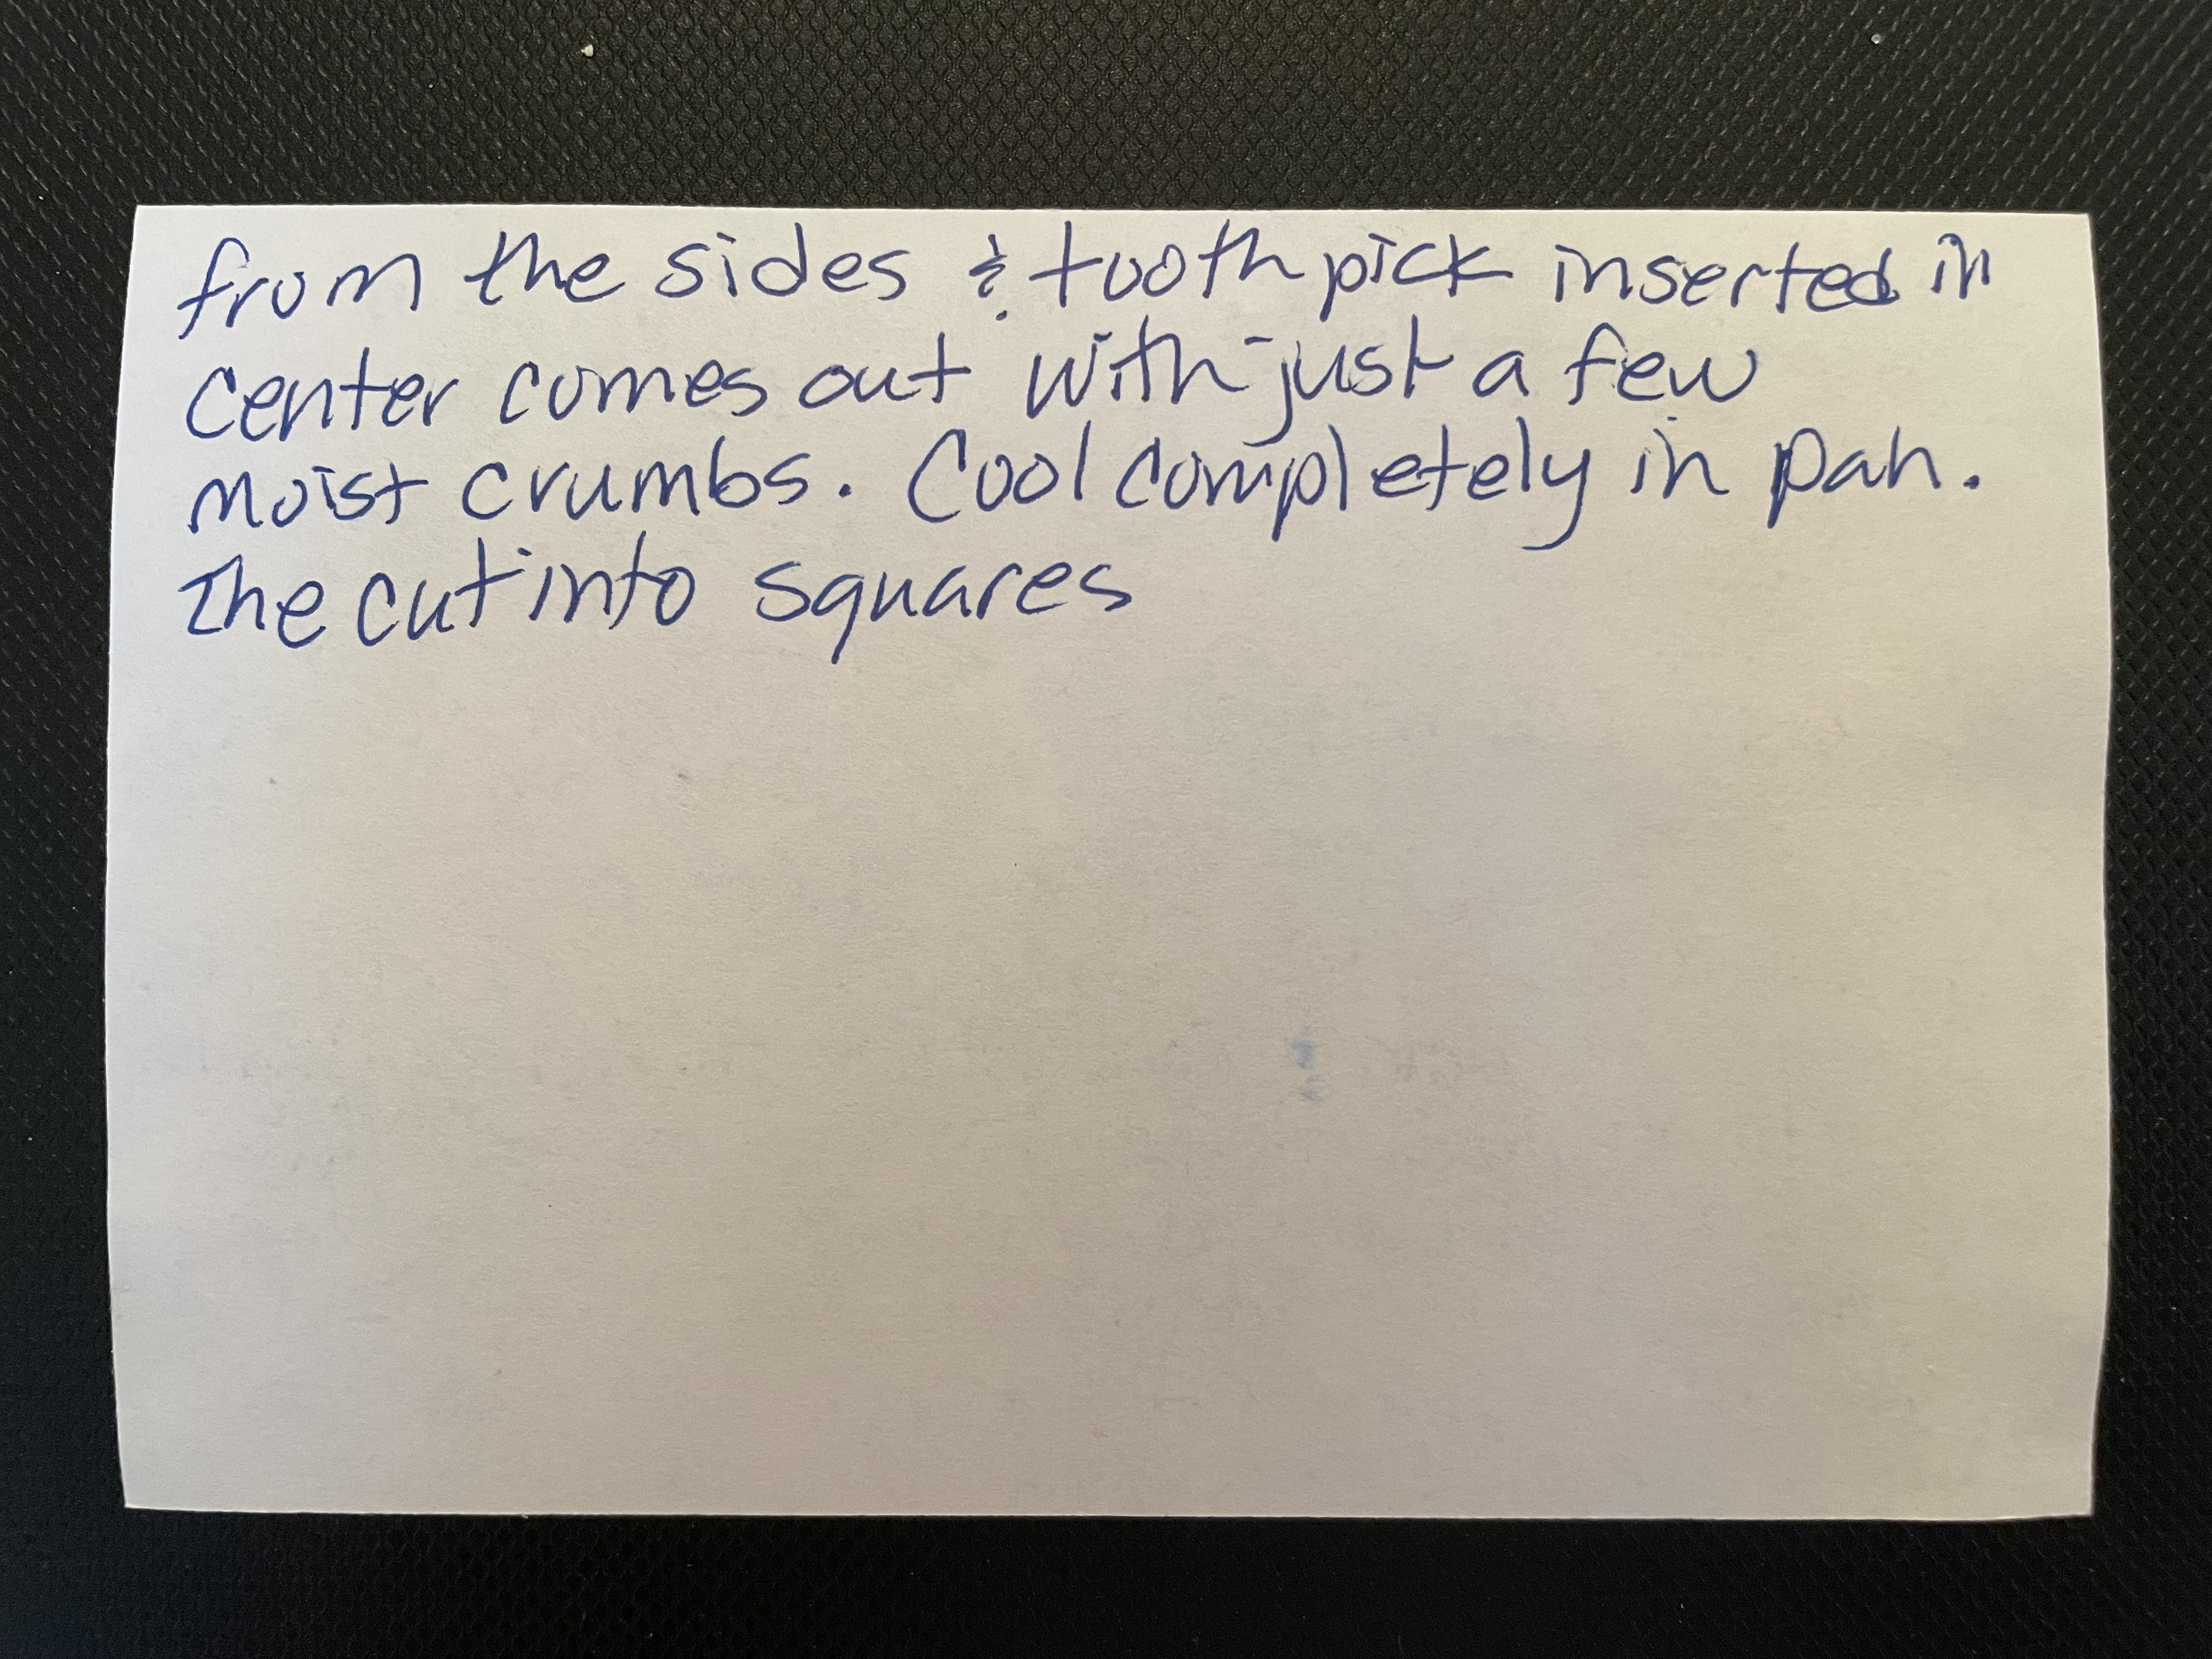 from the sides & toothpick inserted in
center comes out with just a few
moist crumbs. Cool completely in pan.
The cut into squares